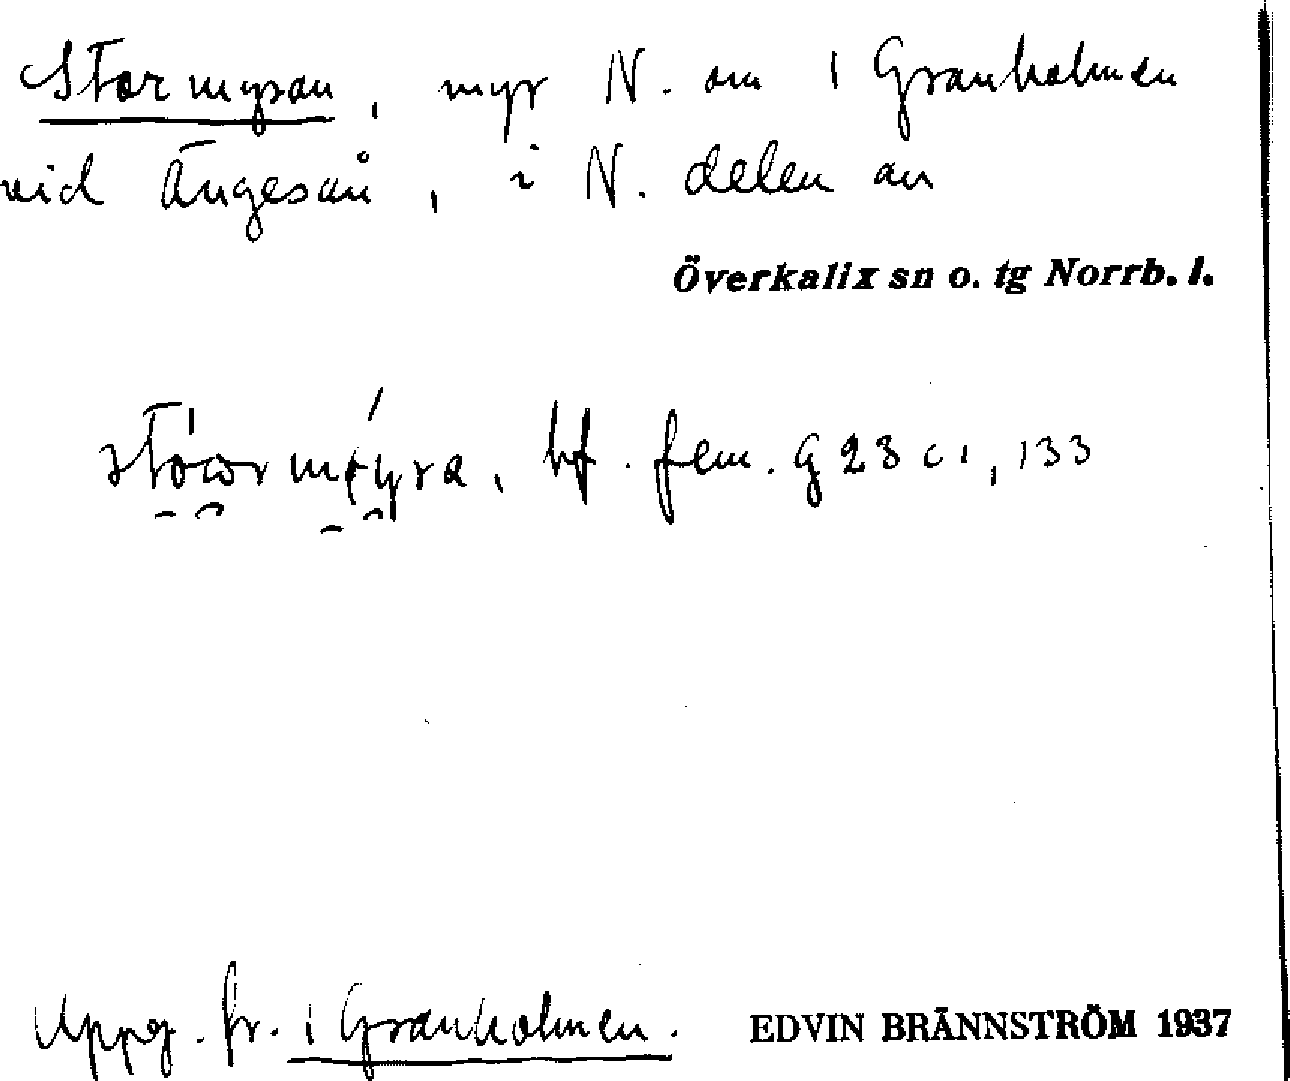 Stormyran, myr N. om 1 Granholmen
vid Ängesån, i N. delen av
Överkalix sn o. tg Norrb. l.
bf. fem. G 23 c 1, 133
Uppg. fr. 1 Granholmen.
EDVIN BRÄNNSTRÖM 1937